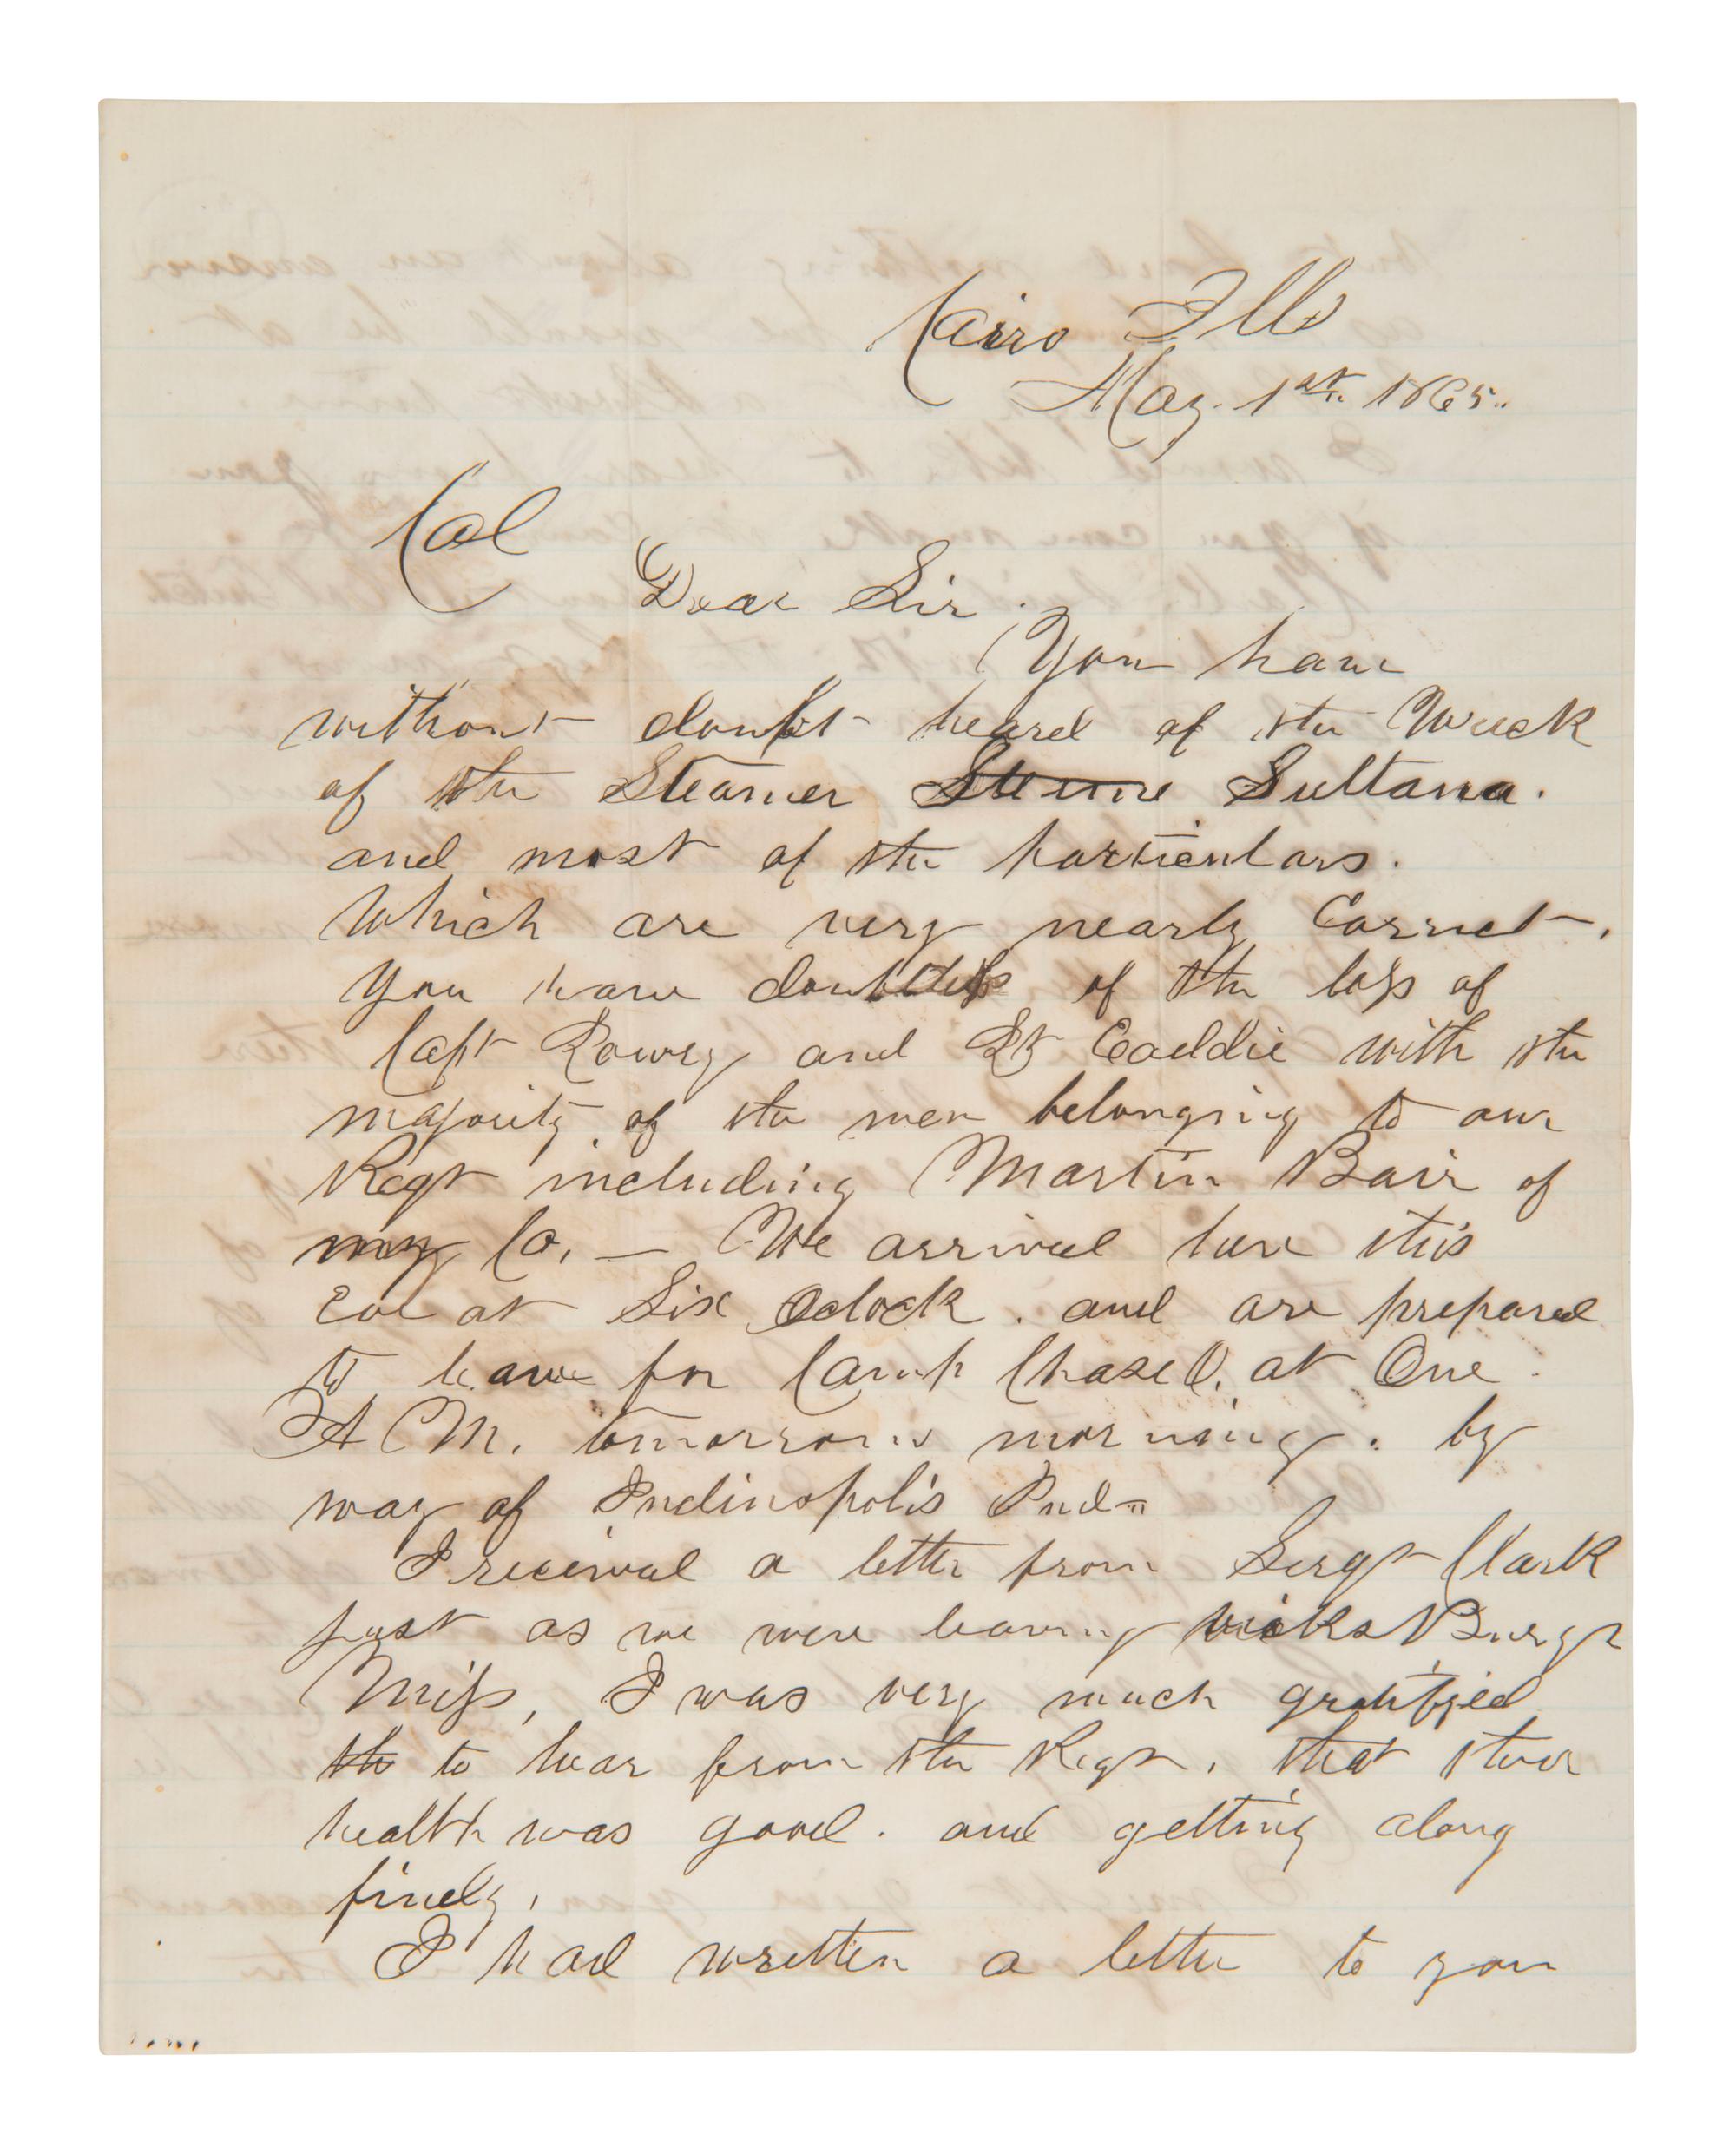 Cairo Ills
May 1st. 1865.
Col
Dear Sir.
You have
without doubt heard of the Wreck
of the Steamer Steme Sultana.
and most of the particulars.
Which are very nearly Correct,
You have doubtless of the loss of
Capt Lowry and Lt Caddie with the
majority of the men belonging to our
Regt including Martin Bair of
my Co, — We arrived here this
Eve at Six Oclock. and are prepared
to leave for Camp Chase O, at One.
A M. tomorrow morning. by
way of Indinopolis Ind=
I received a letter from Sergt Clark
just as we were leaving vicks Burgh
Miss, I was very much gratified
the to hear from the Regt, that their
health was good. and getting along
finely,
I had written a letter to you